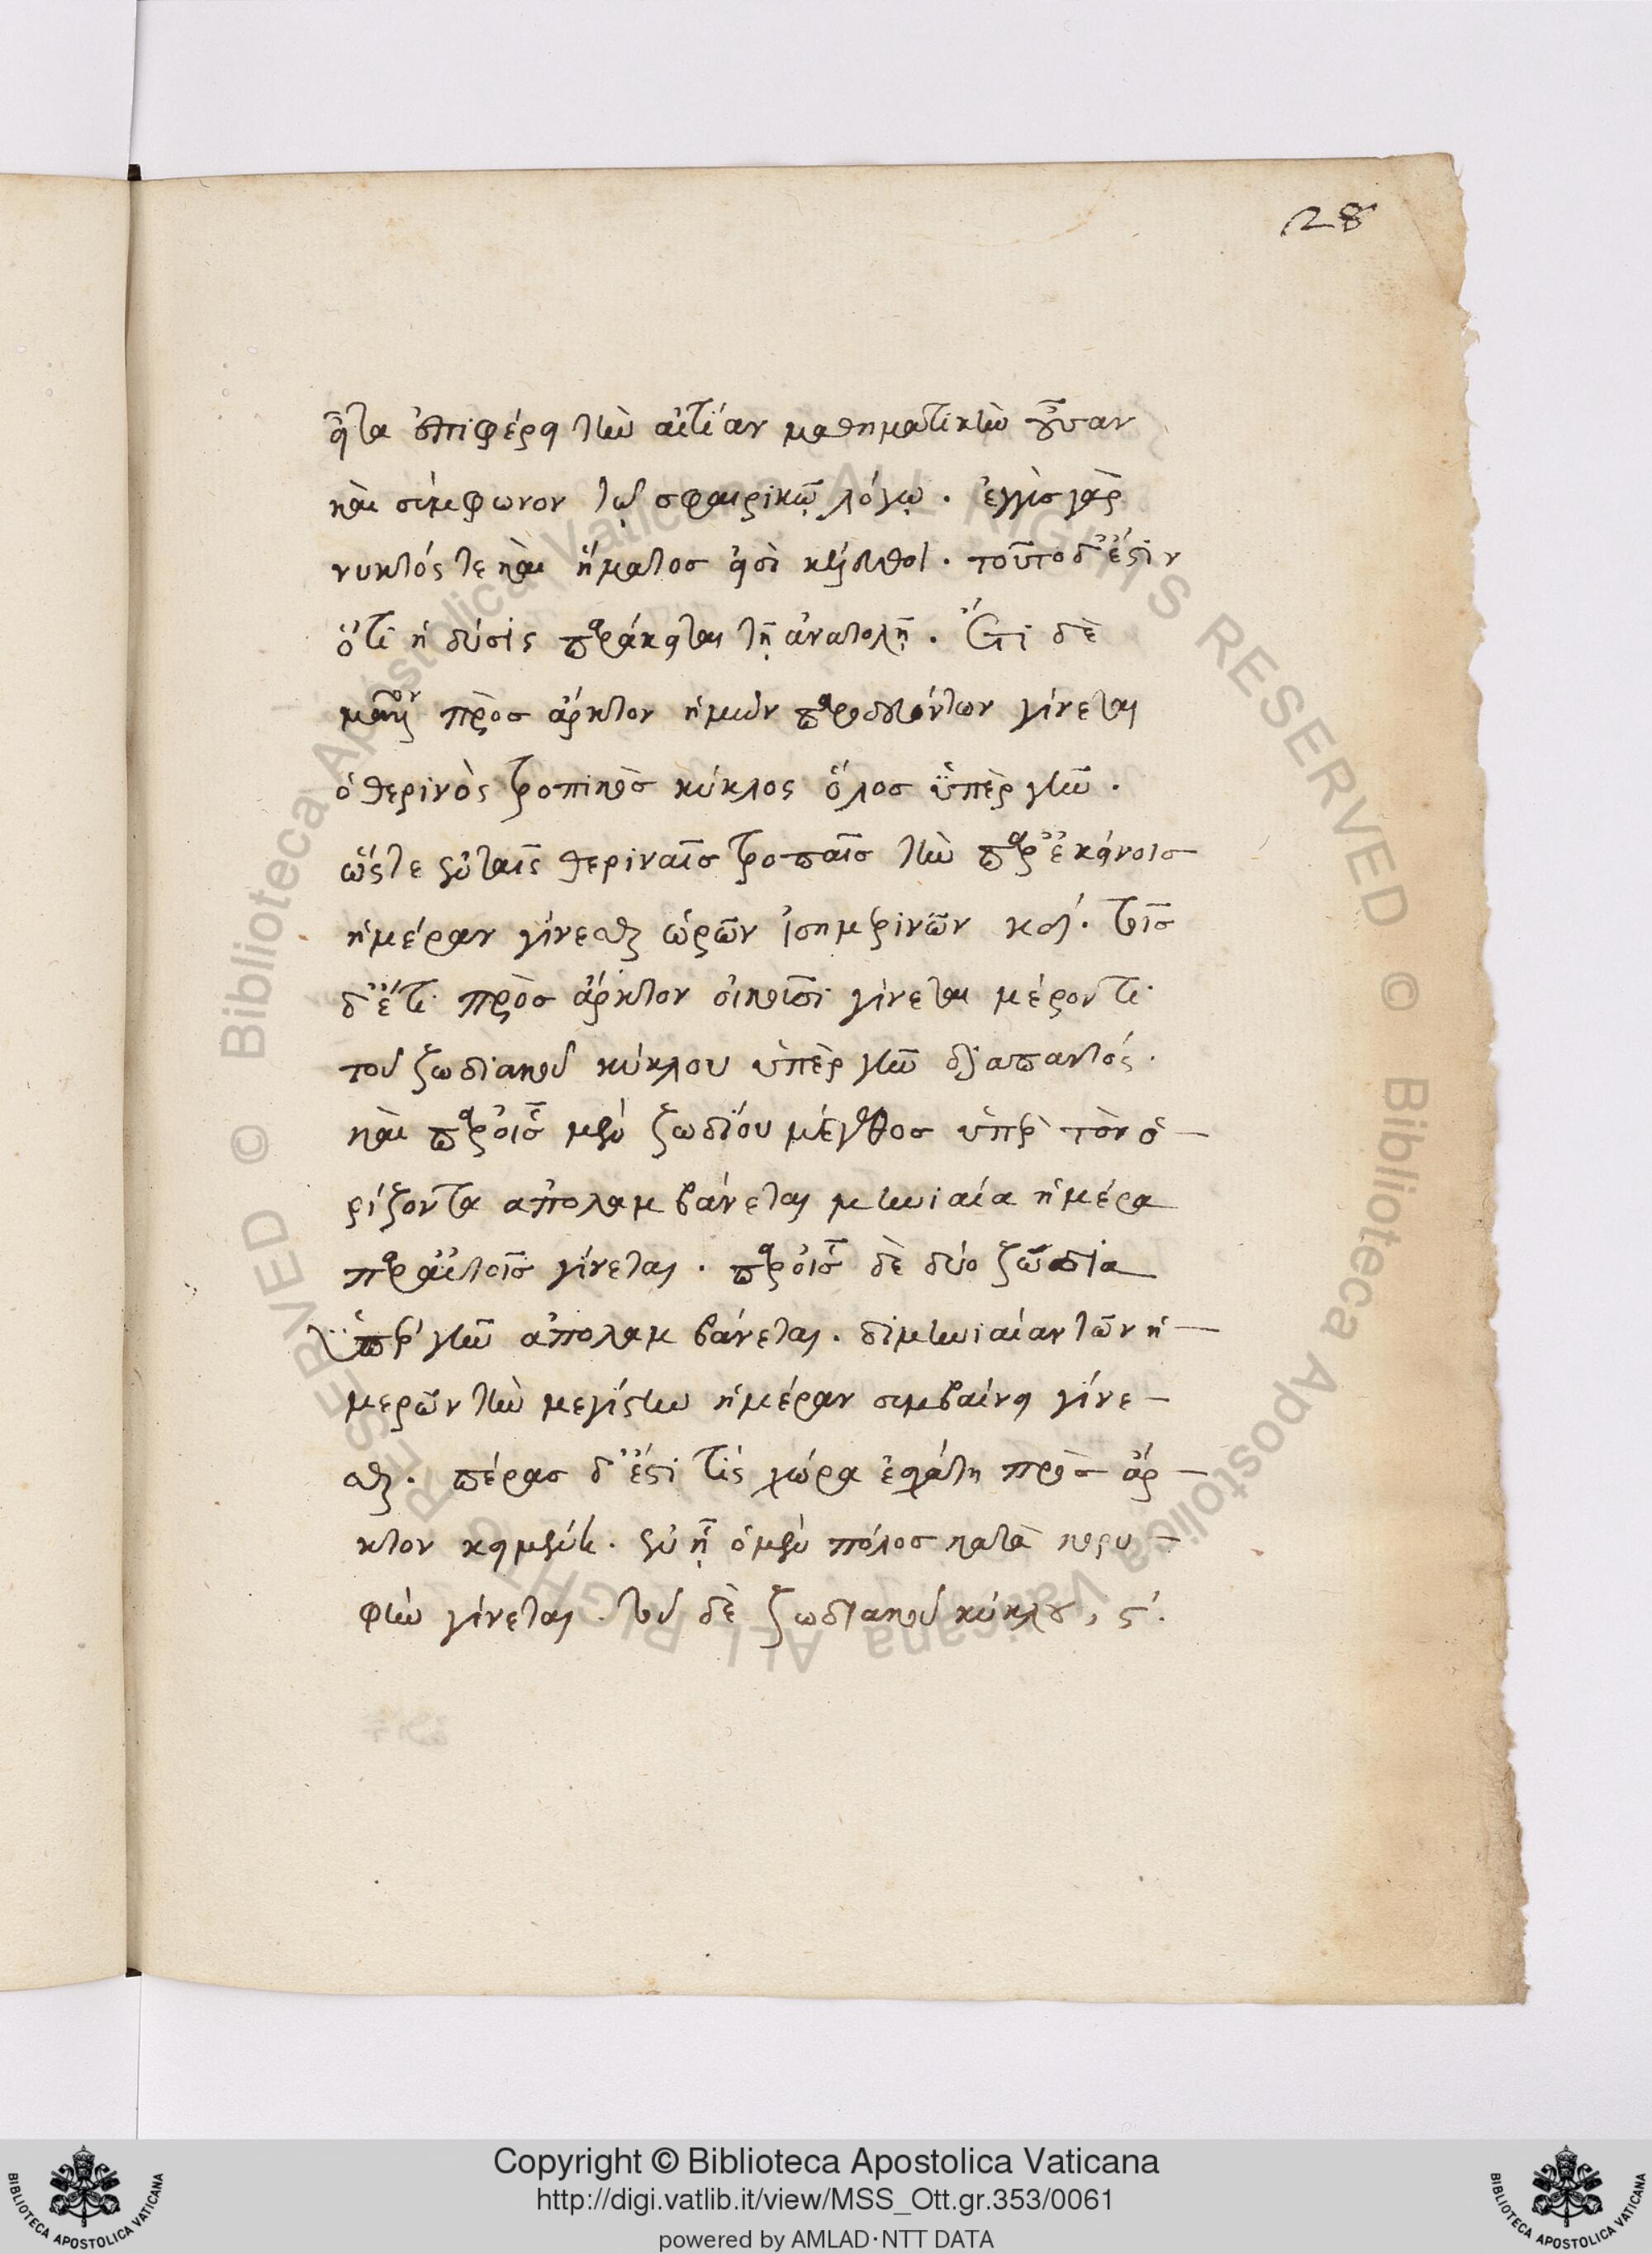 28
εἶτα ἐπιφέρει τὴν αἰτίαν μαθηματικὴν οὖσαν
καὶ σύμφωνον τῷ σφαιρικῷ λόγῳ. ἐγγὺς γὰρ
νυκτός τε καὶ ἤματος εἰσὶ κέλευθοι. τοῦτο δ' ἔστιν
ὅτι ἡ δύσις παράκειται τῇ ἀνατολῇ. Ἔτι δὲ
μᾶλλον πρὸς ἄρκτον ἡμῶν παροδευόντων γίνεται
ὁ θερινὸς τροπικὸς κύκλος ὅλος ὑπὲρ γῆν.
ὥστε ἐν ταῖς θεριναῖς τροπαῖς τὴν παρ' ἐκείνοις
ἡμέραν γίνεσθαι ὡρῶν ἰσημερινῶν κδ'. τοῖς
δ' ἔτι πρὸς ἄρκτον οἰκοῦσι γίνεται μέρον τι
τοῦ ζωδιακοῦ κύκλου ὑπὲρ γῆν διαπαντός.
καὶ παρ' οἷς μὲν ζωδίου μέγεθος ὑπὲρ τὸν ὁ-
ρίζοντα ἀπολαμβάνεται μηνιαία ἡμέρα
παρ' αὐτοῖς γίνεται. παρ' οἷς δὲ δύο ζώδια
ὑπὲρ γῆν ἀπολαμβάνεται. διμηνιαίαν τῶν ἡ-
μερῶν τὴν μεγίστην ἡμέραν συμβαίνει γίνε-
σθαι. πέρας δ' ἔστι τὶς χώρα ἐσχάτη πρὸς ἄρ-
κτον κειμένη. ἐν ᾗ ὁ μὲν πόλος κατὰ κορυ-
φὴν γίνεται. τοῦ δὲ ζωδιακοῦ κύκλου, ϛ'.
Copyright © Biblioteca Apostolica Vaticana
http://digi.vatlib.it/view/MSS_Ott.gr.353/0061
powered by AMLAD·NTT DATA
© Biblioteca Apostolica Vaticana ALL RIGHTS RESERVED
© Biblioteca Apostolica Vaticana ALL RIGHTS RESERVED
BIBLIOTECA APOSTOLICA VATICANA
BIBLIOTECA APOSTOLICA VATICANA